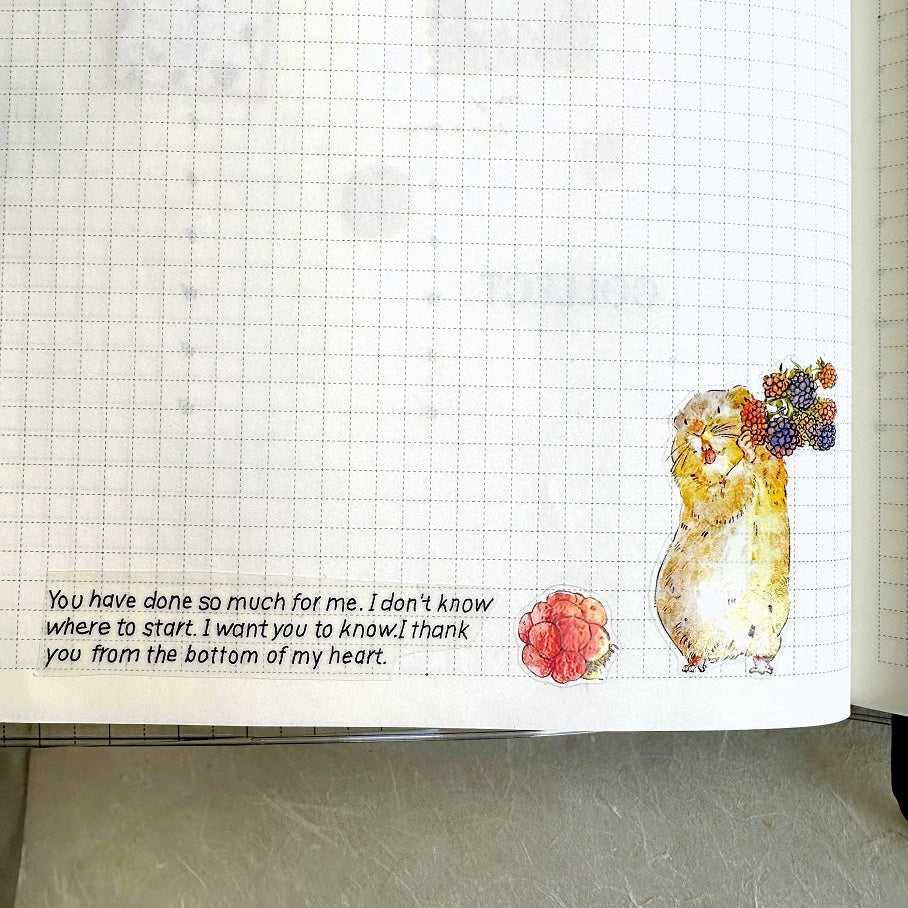 You have done so much for me. I don't know
where to start. I want you to know.I thank
you from the bottom of my heart.